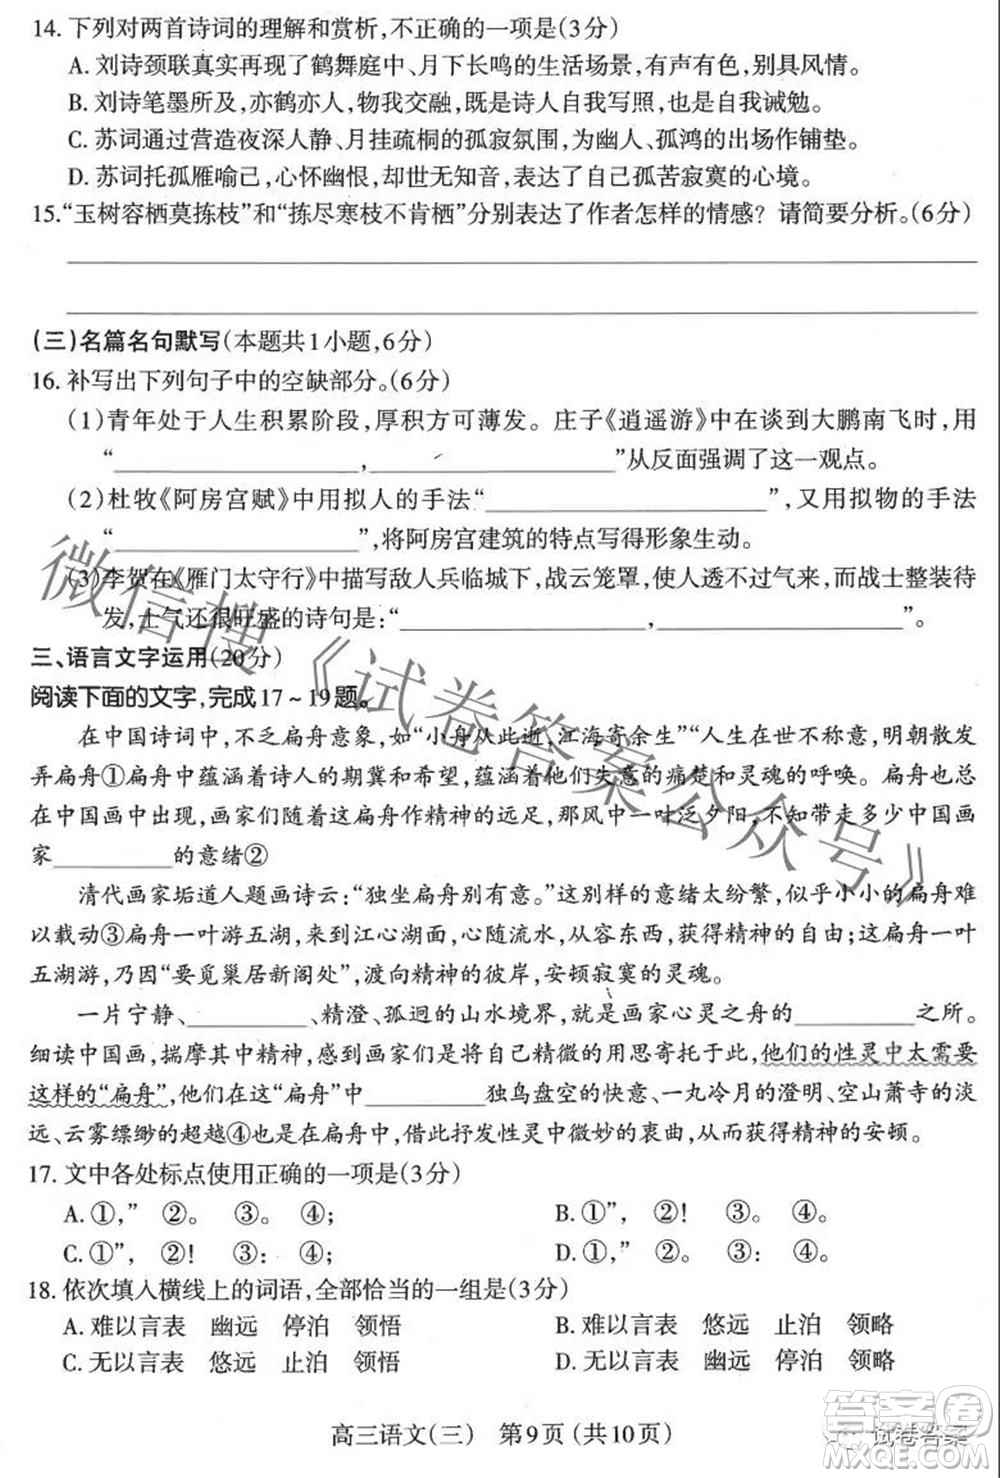 14. 下列对两首诗词的理解和赏析,不正确的一项是(3分)
A. 刘诗颈联真实再现了鹤舞庭中、月下长鸣的生活场景,有声有色,别具风情。
B. 刘诗笔墨所及,亦鹤亦人,物我交融,既是诗人自我写照,也是自我诫勉。
C. 苏词通过营造夜深人静、月挂疏桐的孤寂氛围,为幽人、孤鸿的出场作铺垫。
D. 苏词托孤雁喻己,心怀幽恨,却世无知音,表达了孤苦寂寞的心境。
15.“玉树容栖莫拣枝”和“拣尽寒枝不肯栖”分别表达了作者怎样的情感? 请简要分析。(6分)
(三)名篇名句默写(本题共1小题,6分)
16. 补写出下列句子中的空缺部分。(6分)
(1)青年处于人生积累阶段,厚积方可薄发。庄子《逍遥游》中在谈到大鹏南飞时,用
“____________,____________”从反面强调了这一观点。
(2)杜牧《阿房宫赋》中用拟人的手法“____________”,又用拟物的手法
“____________”,将阿房宫建筑的特点写得形象生动。
(3)李贺在《雁门太守行》中描写敌人兵临城下,战云笼罩,使人透不过气来,而战士整装待
发,士气还很旺盛的诗句是:“____________,____________”。
三、语言文字运用(20分)
阅读下面的文字,完成17~19题。
在中国诗词中,不乏扁舟意象,如“小舟从此逝,江海寄余生”“人生在世不称意,明朝散发
弄扁舟①扁舟中蕴涵着诗人的期冀和希望,蕴涵着他们失意的痛楚和灵魂的呼唤。扁舟也总
在中国画中出现,画家们随着这扁舟作精神的远足,那风中一叶泛夕阳,不知带走多少中国画
家________的意绪②
清代画家垢道人题画诗云:“独坐扁舟别有意。”这别样的意绪太纷繁,似乎小小的扁舟难
以载动③扁舟一叶游五湖,来到江心湖面,心随流水,从容东西,获得精神的自由;这扁舟一叶
五湖游,乃因“要觅巢居新阁处”,渡向精神的彼岸,安顿寂寞的灵魂。
一片宁静、________、精澄、孤迥的山水境界,就是画家心灵之舟的________之所。
细读中国画,揣摩其中精神,感到画家们是将自己精微的用思寄托于此,他们的性灵中太需要
这样的“扁舟”,他们在这“扁舟”中________独鸟盘空的宛转、一丸冷月的澄明、空山萧寺的淡
远、云雾缥缈的超越④在扁舟中,借此抒发性灵中微妙的衷曲,从而获得精神的安顿。
17. 文中各处标点使用正确的一项是(3分)
A. ①,” ②。 ③。 ④;
B. ①”, ②! ③。 ④。
C. ①”, ②! ③: ④;
D. ①,” ②。 ③: ④。
18. 依次填入横线上的词语,全部恰当的一组是(3分)
A. 难以言表 幽远 停泊 领悟
B. 难以言表 悠远 止泊 领略
C. 无以言表 悠远 止泊 领悟
D. 无以言表 幽远 停泊 领略
高三语文(三) 第9页(共10页)
微信搜《试卷答案公众号》
答案圈
试卷答案